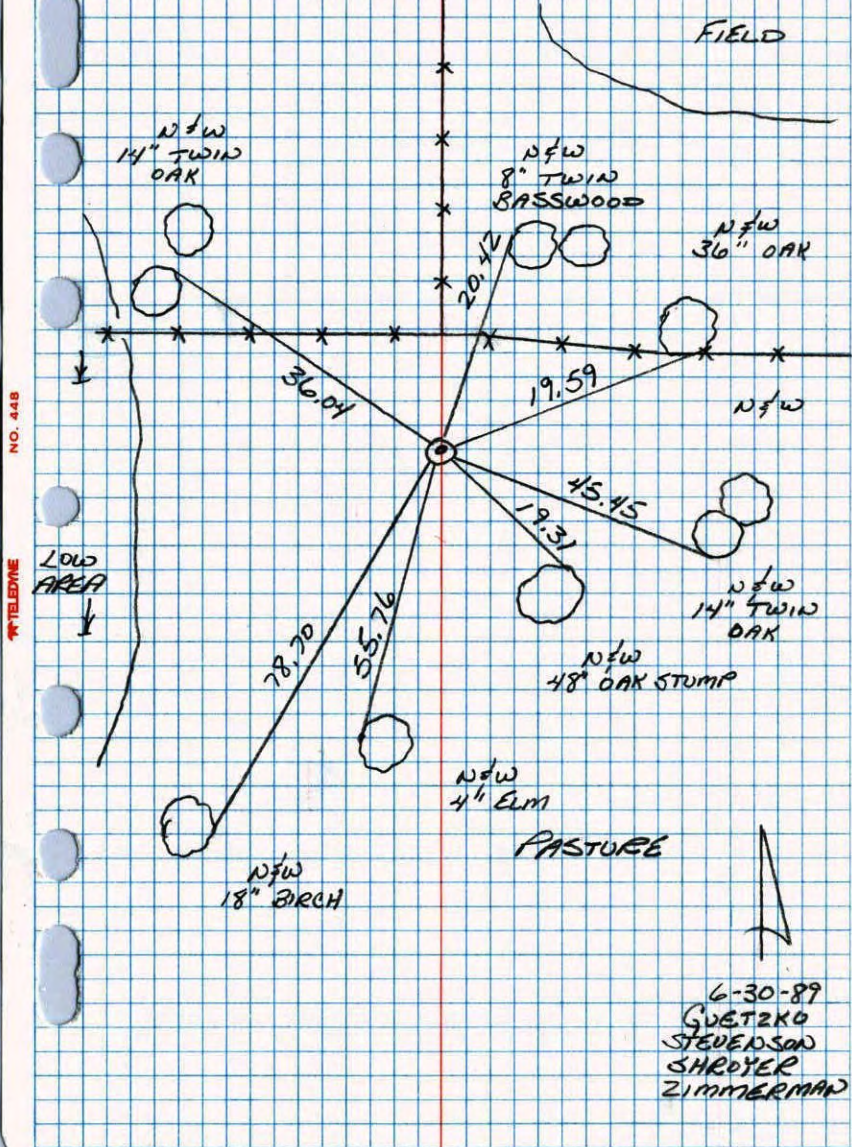 FIELD
N & W
14" TWIN
OAK
N & W
8" TWIN
BASSWOOD
N & W
36" OAK
20.42
36.04
19.59
N & W
NO. 448
45.45
19.31
LOW
AREA
TELEDYNE
N & W
14" TWIN
OAK
78.70
55.76
N & W
48" OAK STUMP
N & W
4" ELM
PASTURE
N & W
18" BIRCH
6-30-89
GUETZKO
STEVENSON
SHROYER
ZIMMERMAN